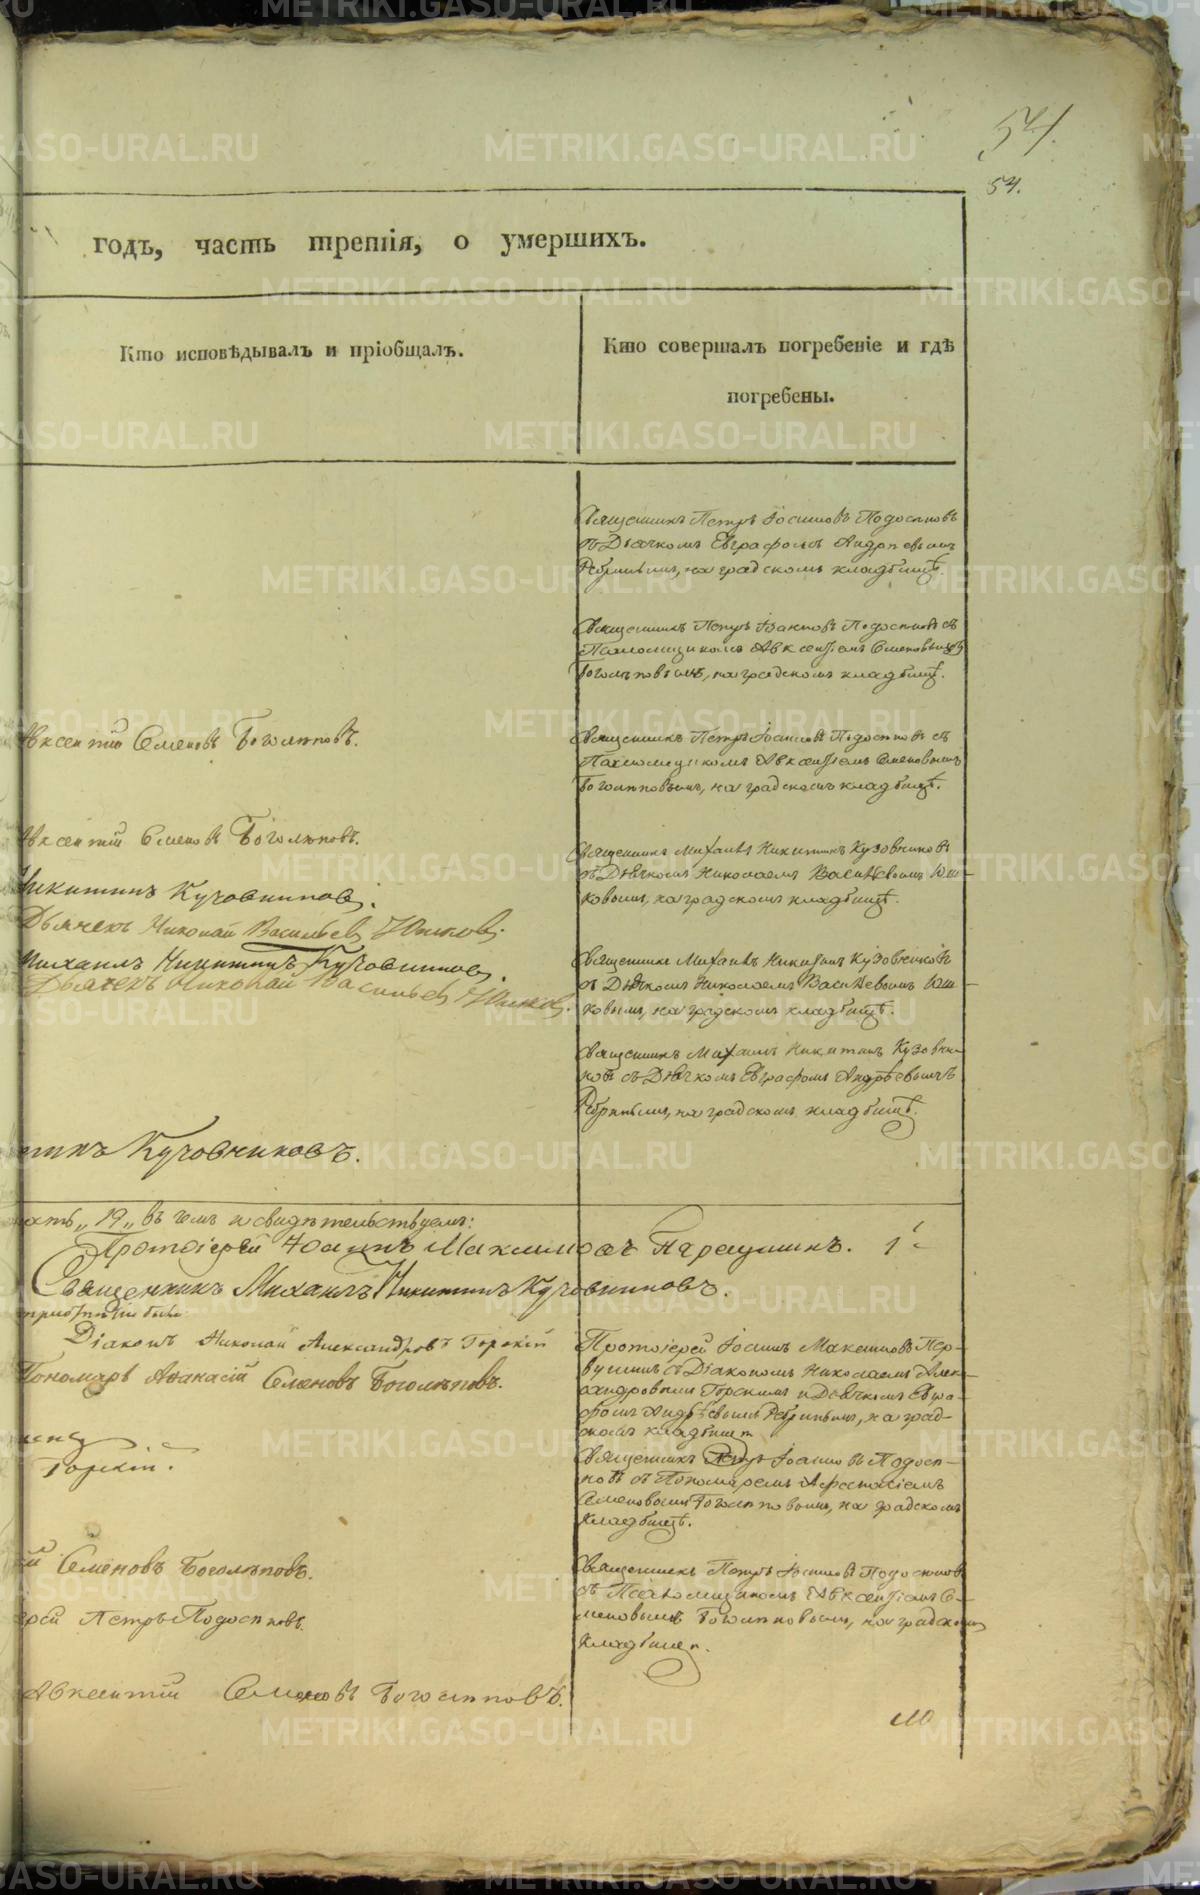 54.
54.
годъ, часть третія, о умершихъ.
Кто исповѣдывалъ и пріобщалъ.
Кто совершалъ погребеніе и гдѣ
погребены.
Священникъ Петръ Іоанновъ Подосеновъ
съ Дьячкомъ Евграфомъ Андреевымъ
на градскомъ кладбищѣ
Священникъ Петръ Іоанновъ Подосеновъ съ
Авксентіемъ Семеновымъ
Боголѣповымъ, на градскомъ кладбищѣ.
Авксентій Семеновъ Боголѣповъ.
Священникъ Петръ Іоанновъ Подосеновъ съ
Авксентіемъ Семеновымъ
Боголѣповымъ, на градскомъ кладбищѣ.
Авксентій Семеновъ Боголѣповъ.
Священникъ Михаилъ Никитинъ Кузовниковъ
съ Дьячкомъ Николаемъ Васильевымъ Юш-
ковымъ, на градскомъ кладбищѣ.
Никитинъ Кузовниковъ.
Дьячекъ Николай Васильевъ Юшковъ.
Михаилъ Никитинъ Кузовниковъ.
Дьячекъ Николай Васильевъ Юшковъ.
Священникъ Михаилъ Никитинъ Кузовниковъ
съ Дьячкомъ Николаемъ Васильевымъ Юш-
ковымъ, на градскомъ кладбищѣ.
Священникъ Михаилъ Никитинъ Кузовни-
ковъ съ Дьячкомъ Евграфомъ Андреевымъ
на градскомъ кладбищѣ.
тинъ Кузовниковъ.
ать „19„ въ чемъ и свидѣтельствуемъ:
Протоіерей Іоаннъ Максимовъ Первушинъ.
Священникъ Михаилъ Никитинъ Кузовниковъ.
Діаконъ Николай Александровъ Горскій
Пономарь Аѳанасій Семеновъ Боголѣповъ.
Протоіерей Іоаннъ Максимовъ Пер-
вушинъ съ Діакономъ Николаемъ Алек-
сандровымъ Горскимъ и Дьячкомъ Евгра-
фомъ Андреевымъ на град-
скомъ кладбищѣ
Горскій.
Священникъ Петръ Іоанновъ Подосе-
новъ съ Пономаремъ Афанасіемъ
Семеновымъ Боголѣповымъ, на градскомъ
кладбищѣ.
й Семеновъ Боголѣповъ.
ерей Петръ Подосеновъ.
Священникъ Петръ Іоанновъ Подосеновъ
съ Авксентіемъ Се-
меновымъ Боголѣповымъ, на градскомъ
кладбищѣ.
Авксентій Семеновъ Боголѣповъ.
METRIKI.GASO-URAL.RU